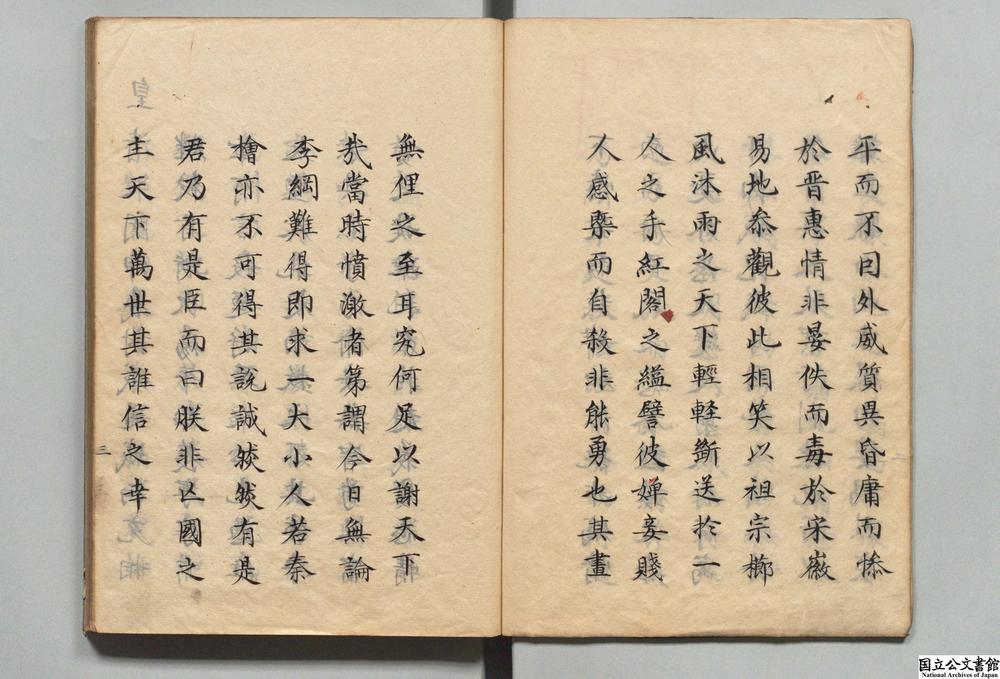 平而不曰外威質異昏庸而慘
於晋惠情非晏佚而毒於宋徽
易地叅觀彼此相笑以祖宗櫛
風沐雨之天下輕輕斷送於一
人之手紅閣之縊譬彼婢妾賤
人感槩而自殺非能勇也其畫
無俚之至耳究何足以謝天下
㢤當時憤激者第謂今日無論
李綱難得即求一大小人若秦
檜亦不可得其說誠然然有是
君乃有是臣而曰朕非亾國之
主天下萬世其誰信之幸
三
国立公文書館
National Archives of Japan